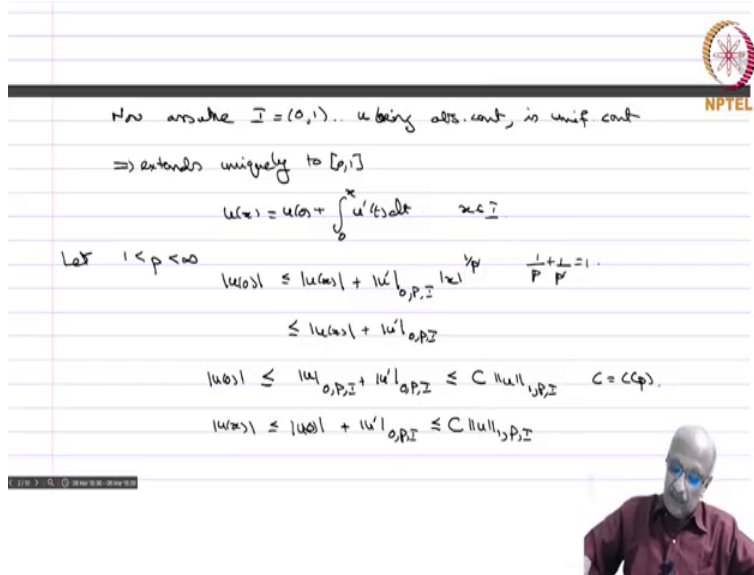 NPTEL
Now assume I = (0,1). u being abs. cont, is unif cont
⇒ extends uniquely to [0,1]
u(x) = u(0) + ∫₀ˣ u'(t)dt x ∈ I
Let 1 < p < ∞
|u(0)| ≤ |u(x)| + |u'|_{0,p,I} |x|^{1/p'} 1/p + 1/p' = 1.
≤ |u(x)| + |u'|_{0,p,I}
|u(0)| ≤ |u|_{0,p,I} + |u'|_{0,p,I} ≤ C ||u||_{1,p,I} C = C(p).
|u(x)| ≤ |u(0)| + |u'|_{0,p,I} ≤ C ||u||_{1,p,I}
2/10